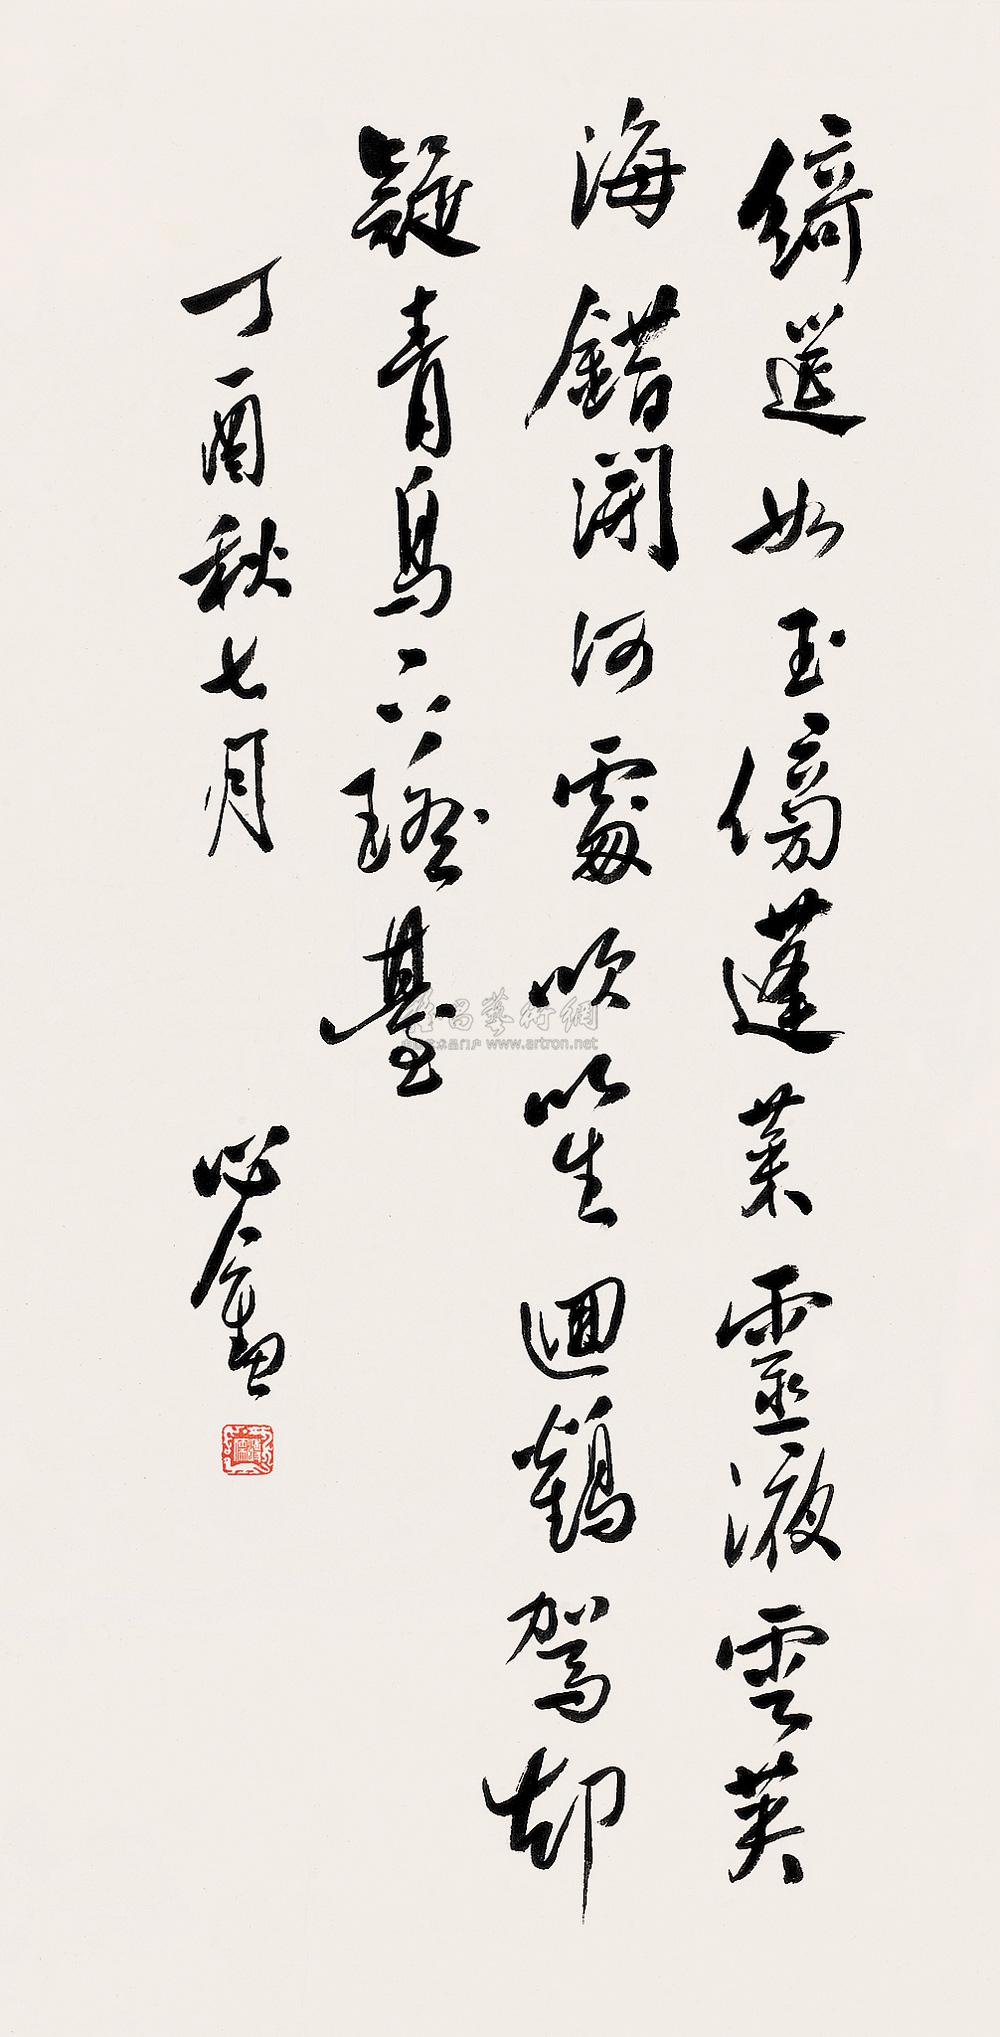 綺筵如玉傍蓬萊靈液雲英
海錯開何處吹笙迴鶴駕却
疑青鳥下瑤臺
丁酉秋七月
心畬
雅昌藝術網
www.artron.net